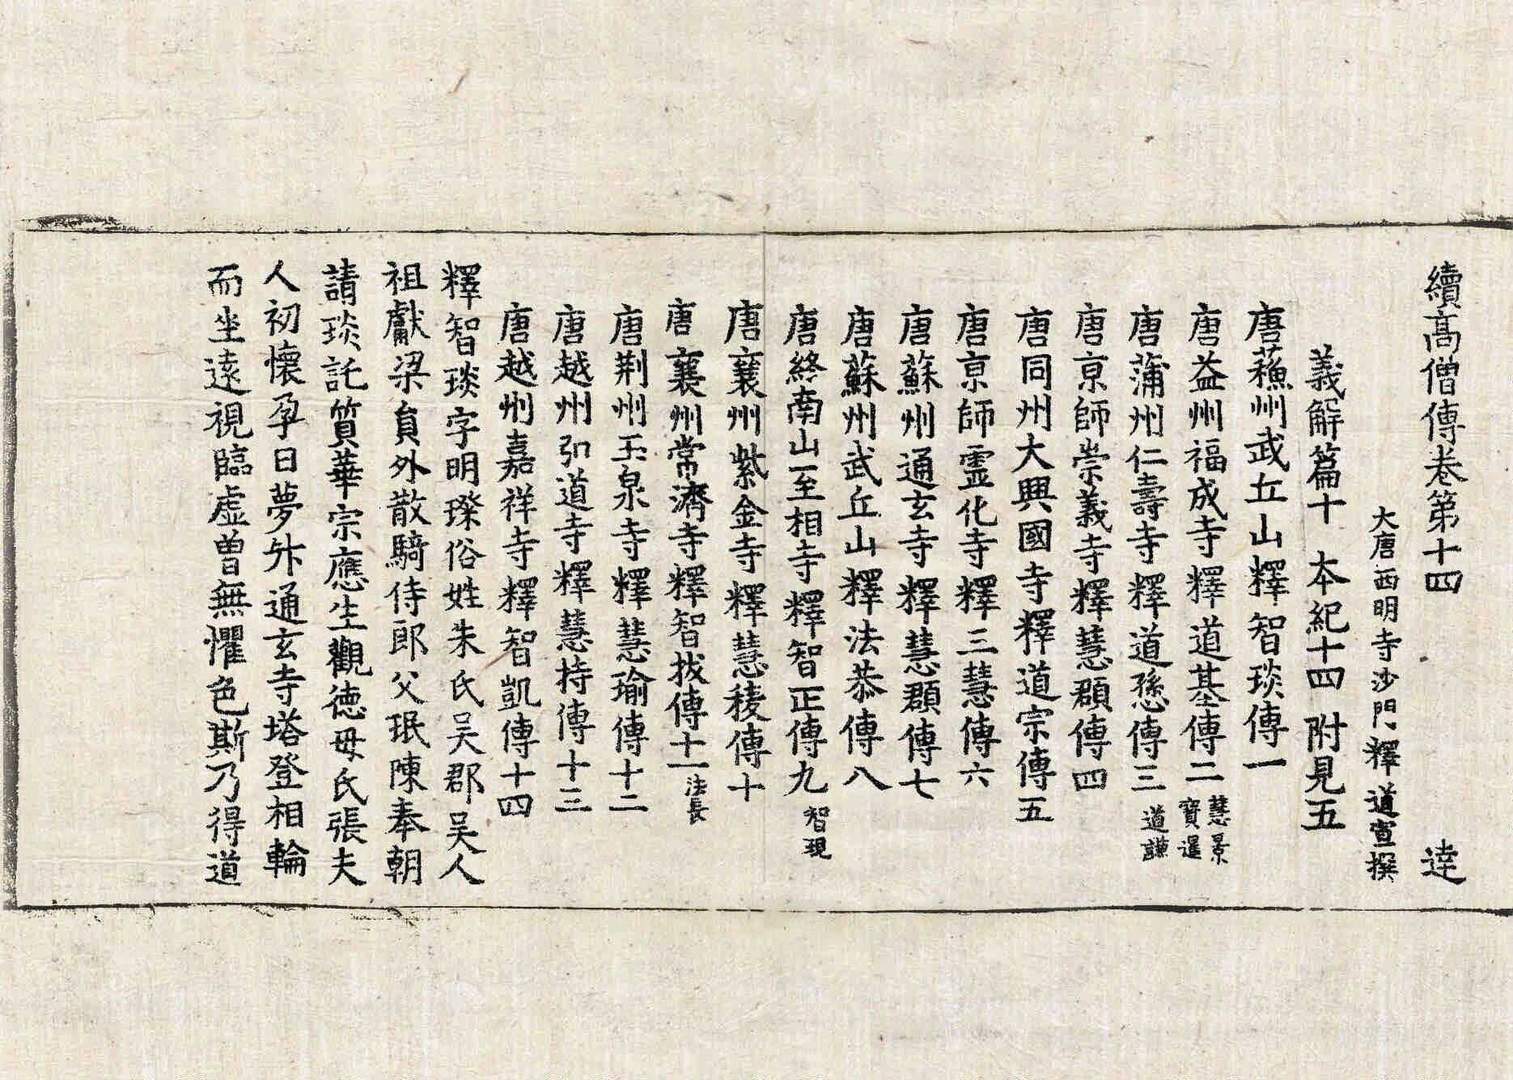 續高僧傳卷第十四 逹
大唐西明寺沙門釋道宣撰
義解篇十 本紀十四 附見五
唐蘓州武丘山釋智琰傳一
唐益州福成寺釋道基傳二 慧景 寶暹
唐蒲州仁壽寺釋道愻傳三 道謙
唐京師崇義寺釋慧頵傳四
唐同州大興國寺釋道宗傳五
唐京師霊化寺釋三慧傳六
唐蘇州通玄寺釋慧頵傳七
唐蘇州武丘山釋法恭傳八
唐終南山至相寺釋智正傳九 智現
唐襄州紫金寺釋慧稜傳十
唐襄州常濟寺釋智拔傳十一 法長
唐荆州玉泉寺釋慧瑜傳十二
唐越州弘道寺釋慧持傳十三
唐越州嘉祥寺釋智凱傳十四
釋智琰字明璨俗姓朱氏吳郡吳人
祖獻梁貟外散騎侍郎父珉陳奉朝
請琰託質華宗應生觀德母氏張夫
人初懷孕日夢外通玄寺塔登相輪
而坐遠視臨虛曾無懼色斯乃得道